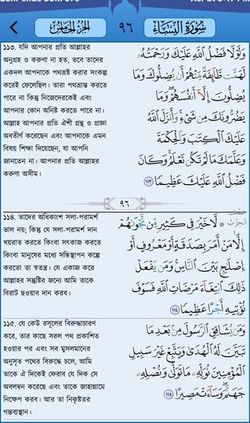 الجزء الخامس
٩٦
سورة النساء
১১৩. যদি আপনার প্রতি আল্লাহর
অনুগ্রহ ও করুণা না হত, তবে তাদের
একদল আপনাকে পথভ্রষ্ট করার সংকল্প
করেই ফেলেছিল। তারা পথভ্রষ্ট করতে
পারে না কিন্তু নিজেদেরকেই এবং
আপনার কোন অনিষ্ট করতে পারে না।
আল্লাহ আপনার প্রতি ঐশী গ্রন্থ ও প্রজ্ঞা
অবতীর্ণ করেছেন এবং আপনাকে এমন
বিষয় শিক্ষা দিয়েছেন, যা আপনি
জানতেন না। আপনার প্রতি আল্লাহর
করুণা অসীম।
وَلَوْلَا فَضْلُ اللَّهِ عَلَيْكَ وَرَحْمَتُهُ
لَهَمَّت طَّآئِفَةٌ مِّنْهُمْ أَن يُضِلُّوكَ وَمَا
يُضِلُّونَ إِلَّآ أَنفُسَهُمْ وَمَا
يَضُرُّونَكَ مِن شَيْءٍ وَأَنزَلَ اللَّهُ
عَلَيْكَ الْكِتَٰبَ وَالْحِكْمَةَ
وَعَلَّمَكَ مَا لَمْ تَكُن تَعْلَمُ وَكَانَ
فَضْلُ اللَّهِ عَلَيْكَ عَظِيمًا ١١٣
٩٦
১১৪. তাদের অধিকাংশ সলা-পরামর্শ
ভাল নয়; কিন্তু যে সলা-পরামর্শ দান
খয়রাত করতে কিংবা সৎকাজ করতে
কিংবা মানুষের মধ্যে সন্ধিস্থাপন কল্পে
করতো তা স্বতন্ত্র। যে একাজ করে
আল্লাহর সন্তুষ্টির জন্যে আমি তাকে
বিরাট ছওয়াব দান করব।
لَّا خَيْرَ فِي كَثِيرٍ مِّن نَّجْوَىٰهُمْ
إِلَّا مَنْ أَمَرَ بِصَدَقَةٍ أَوْ مَعْرُوفٍ أَوْ
إِصْلَٰحٍ بَيْنَ النَّاسِ وَمَن يَفْعَلْ
ذَٰلِكَ ابْتِغَآءَ مَرْضَاتِ اللَّهِ فَسَوْفَ
نُؤْتِيهِ أَجْرًا عَظِيمًا ١١٤
১১৫. যে কেউ রসূলের বিরুদ্ধাচারণ
করে, তার কাছে সরল পথ প্রকাশিত
হওয়ার পর এবং সব মুসলমানের
অনুসৃত পথের বিরুদ্ধে চলে, আমি
তাকে ঐ দিকেই ফেরাব যে দিক সে
অবলম্বন করেছে এবং তাকে জাহান্নামে
নিক্ষেপ করব। আর তা নিকৃষ্টতর
গন্তব্যস্থান।
وَمَن يُشَاقِقِ الرَّسُولَ مِن بَعْدِ مَا
تَبَيَّنَ لَهُ الْهُدَىٰ وَيَتَّبِعْ غَيْرَ سَبِيلِ
الْمُؤْمِنِينَ نُوَلِّهِ مَا تَوَلَّىٰ وَنُصْلِهِ
جَهَنَّمَ وَسَآءَتْ مَصِيرًا ١١٥